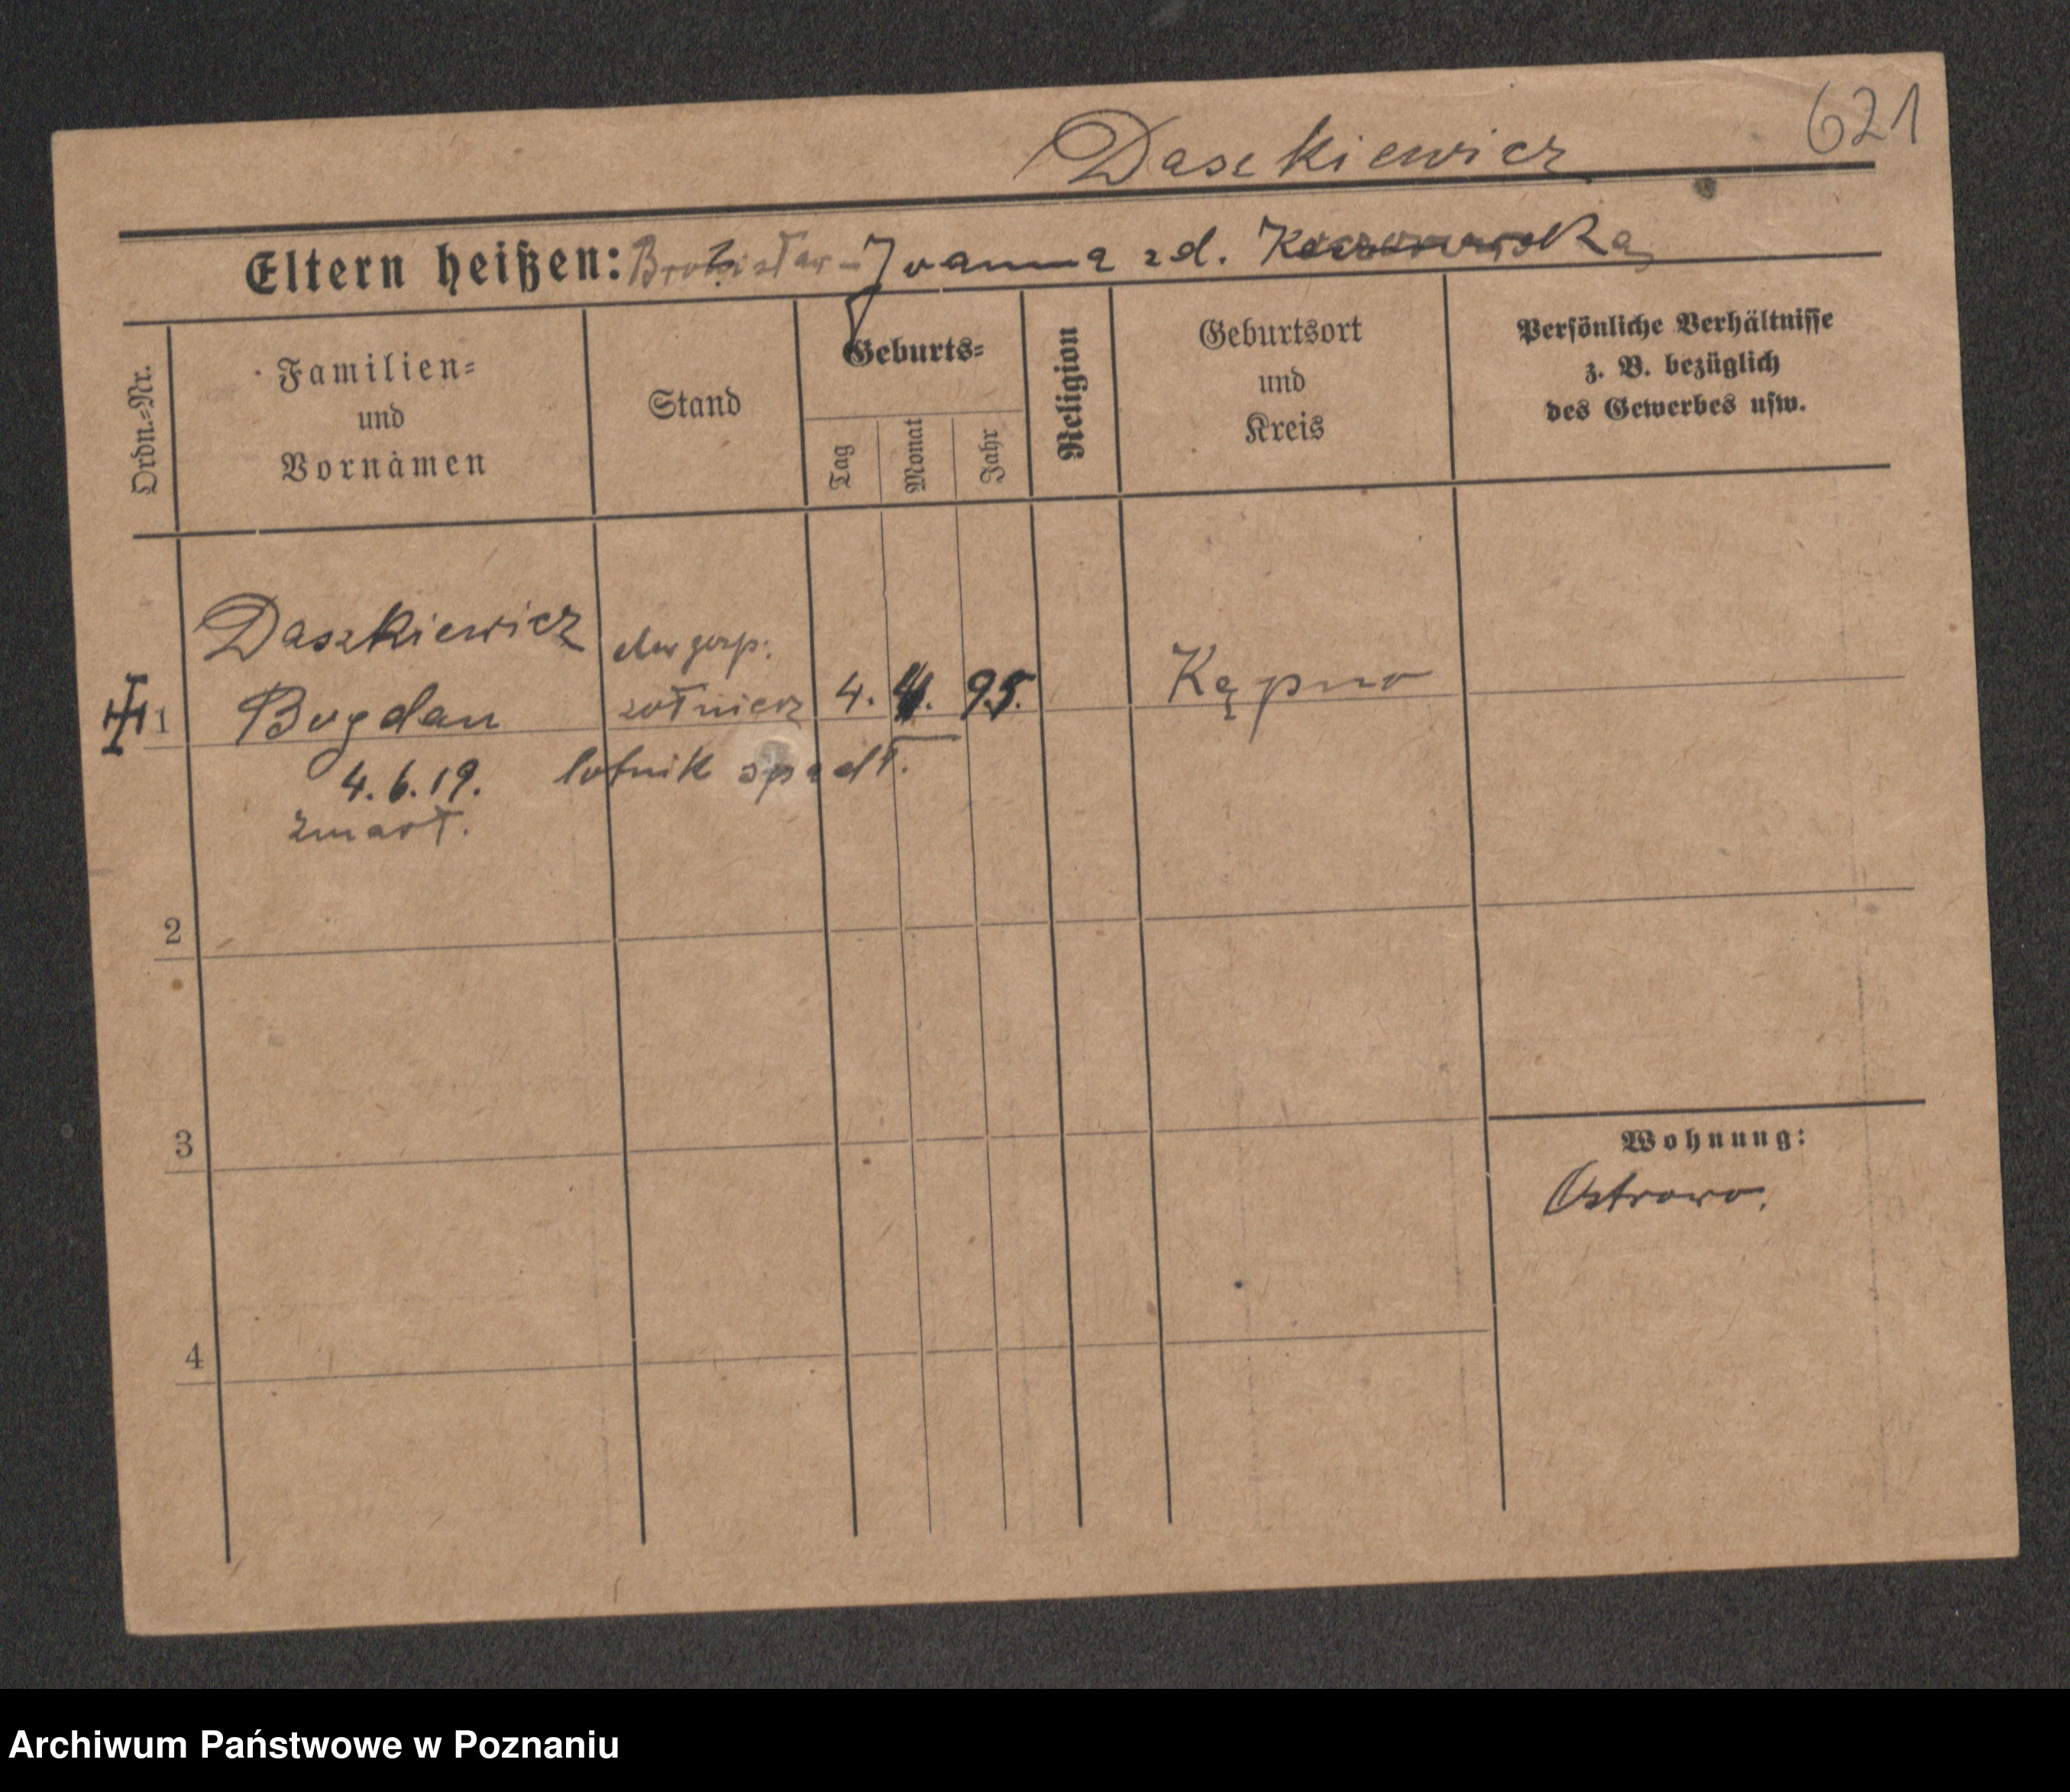 621
Daszkiewicz
Eltern heißen: Bronisław - Joanna zd.
Ordn.=Nr.
Familien=
und
Vornamen
Stand
Geburts=
Tag
Monat
Jahr
Religion
Geburtsort
und
Kreis
Persönliche Verhältnisse
z. B. bezüglich
des Gewerbes usw.
Daszkiewicz
1 Bogdan
żołnierz
4. 4. 95.
Kępno
4.6.19. lotnik spadł.
zmarł.
2
3
Wohnung:
Ostrowo.
4
Archiwum Państwowe w Poznaniu